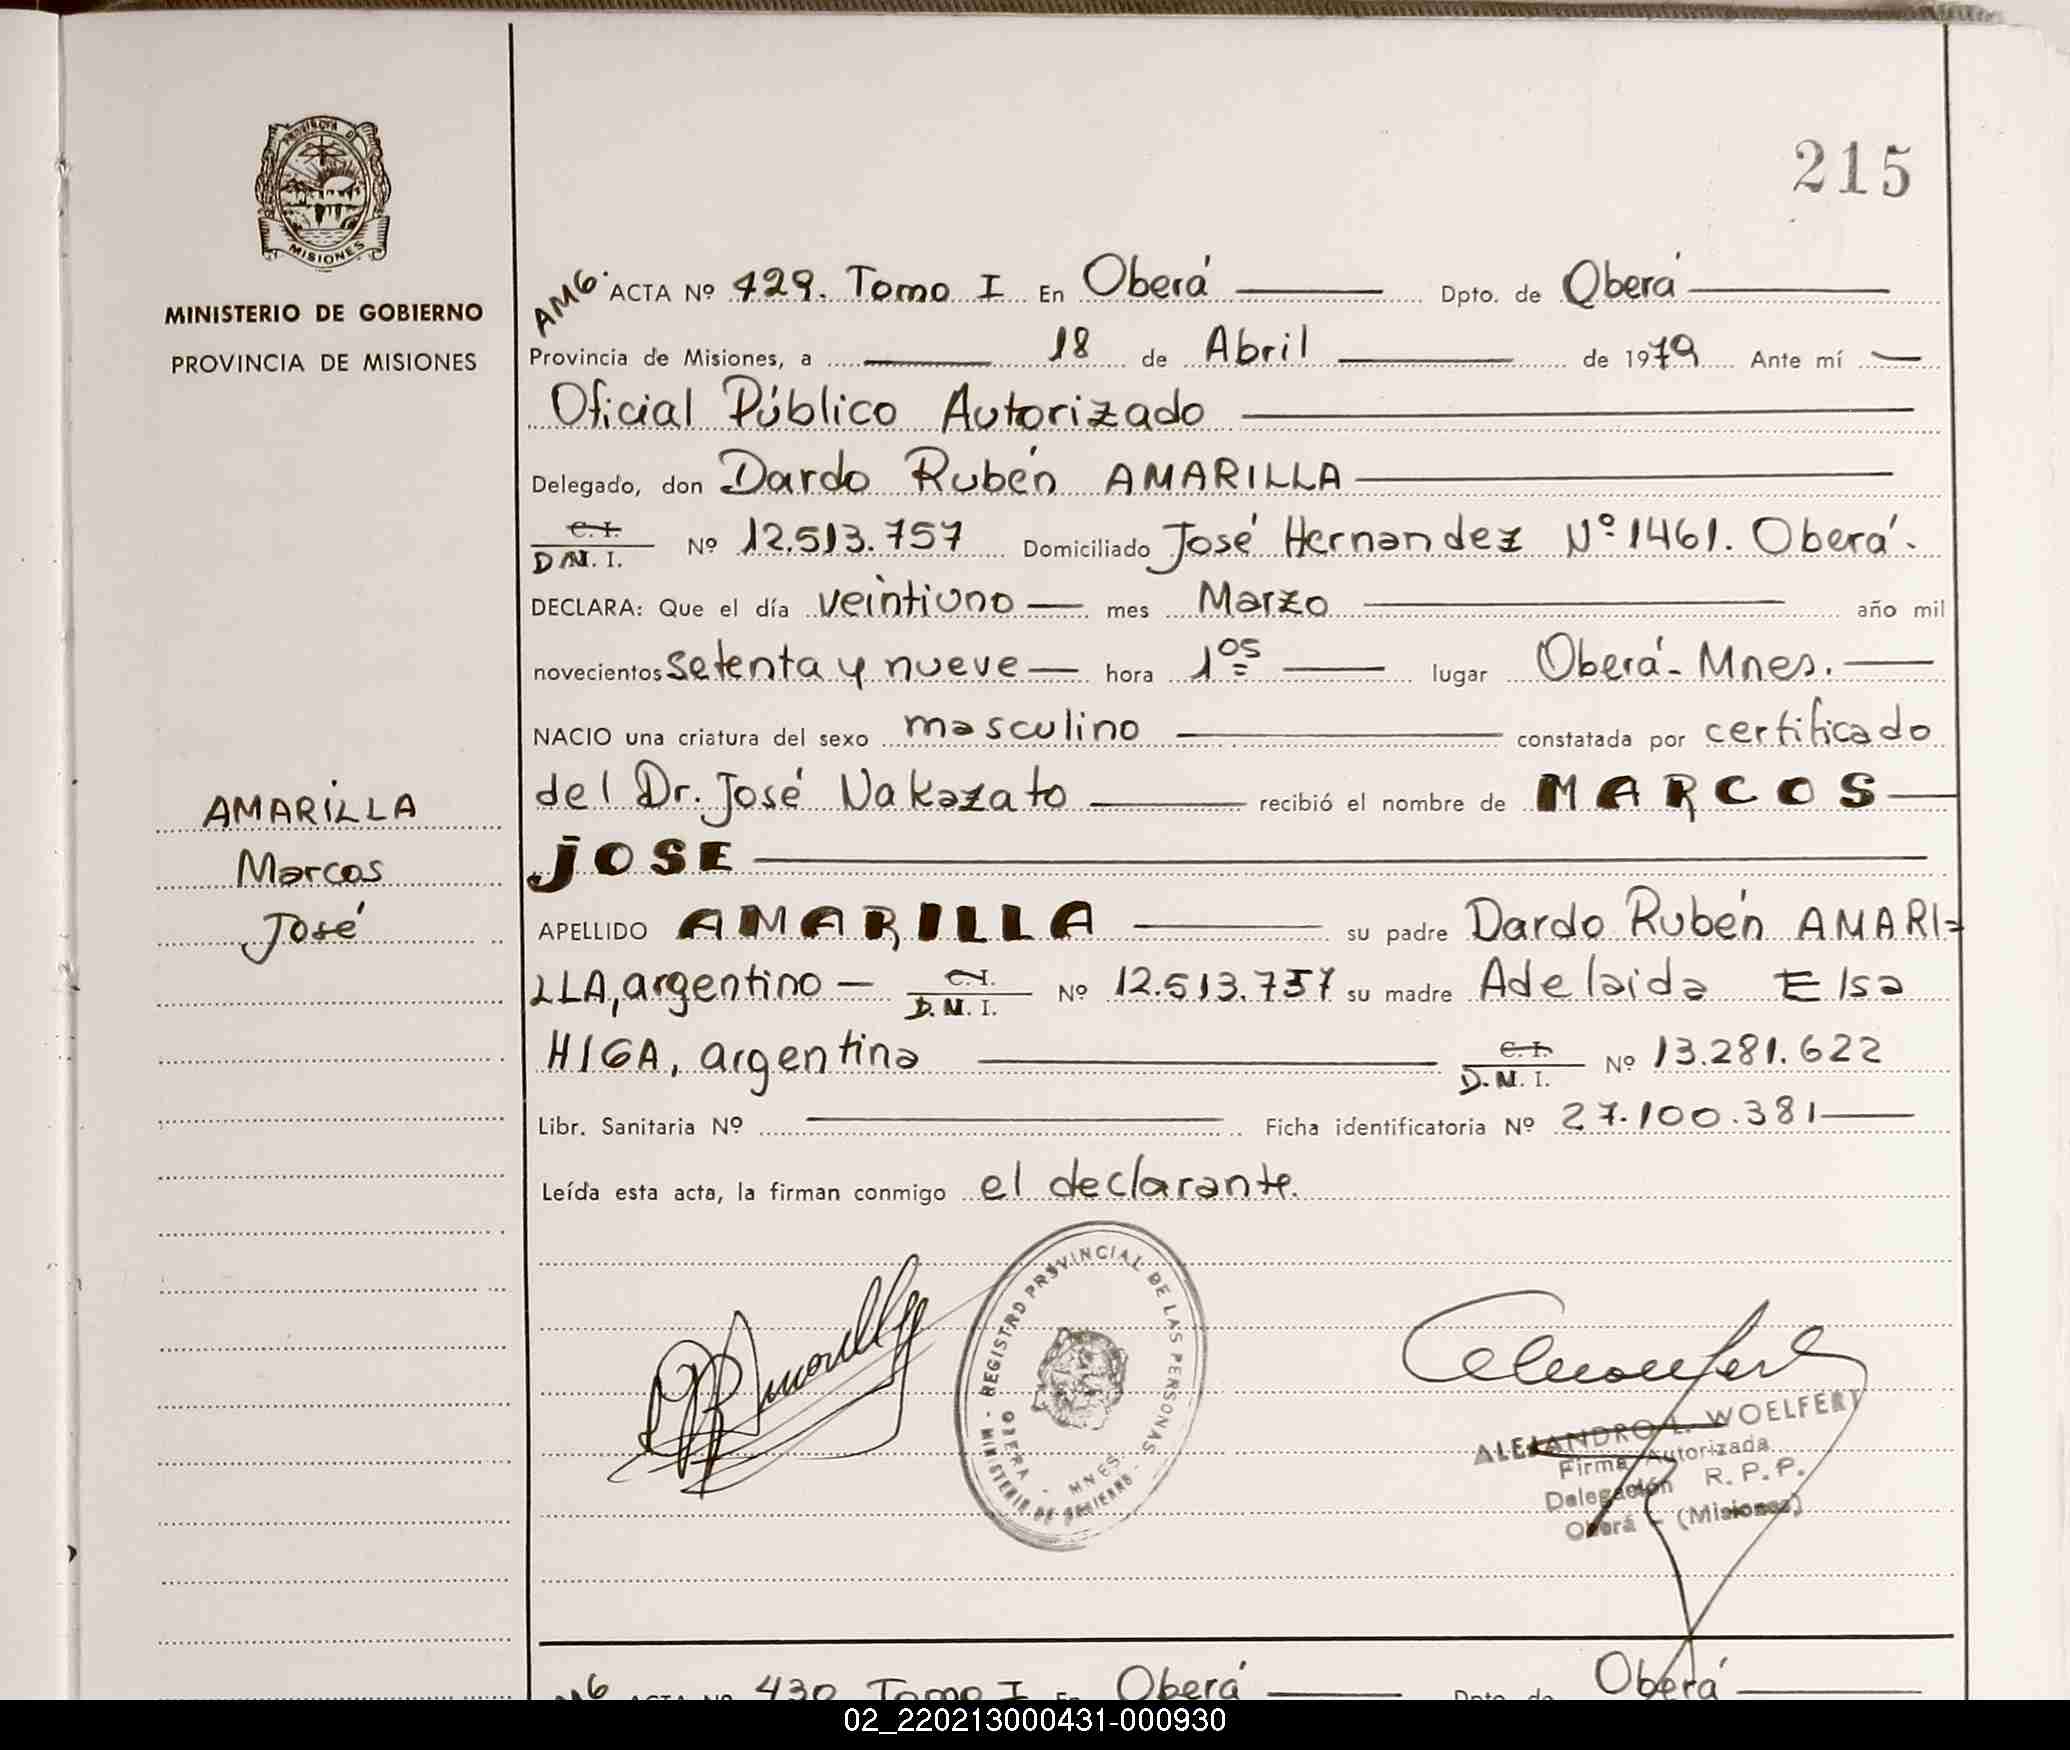 PROVINCIA DE
MISIONES
MINISTERIO DE GOBIERNO
PROVINCIA DE MISIONES
AMARILLA
Marcos
José
215
AMG. ACTA Nº 429. Tomo I En Oberá Dpto. de Oberá
Provincia de Misiones, a 18 de Abril de 1979 Ante mí
Oficial Público Autorizado
Delegado, don Dardo Rubén AMARILLA
C. I.
D.N. I. Nº 12.513.757 Domiciliado José Hernandez Nº 1461. Oberá.
DECLARA: Que el día veintiuno mes Marzo año mil
novecientos setenta y nueve hora 1 05 lugar Oberá - Mnes.
NACIO una criatura del sexo masculino constatada por certificado
del Dr. José Nakazato recibió el nombre de MARCOS
JOSE
APELLIDO AMARILLA su padre Dardo Rubén AMARI=
LLA, argentino - C. I. D. N. I. Nº 12.513.757 su madre Adelaida Elsa
HIGA, argentina C. I. D. N. I. Nº 13.281.622
Libr. Sanitaria Nº Ficha identificatoria Nº 27.100.381
Leída esta acta, la firman conmigo el declarante.
REGISTRO PROVINCIAL DE LAS PERSONAS
- MINISTERIO DE GOBIERNO -
OBERA - MNES.
ALEJANDRO L. WOELFERT
Firma Autorizada
Delegación R. P. P.
Oberá - (Misiones)
ACTA Nº 430 Tomo I En Oberá Dpto. de Oberá
02_220213000431-000930